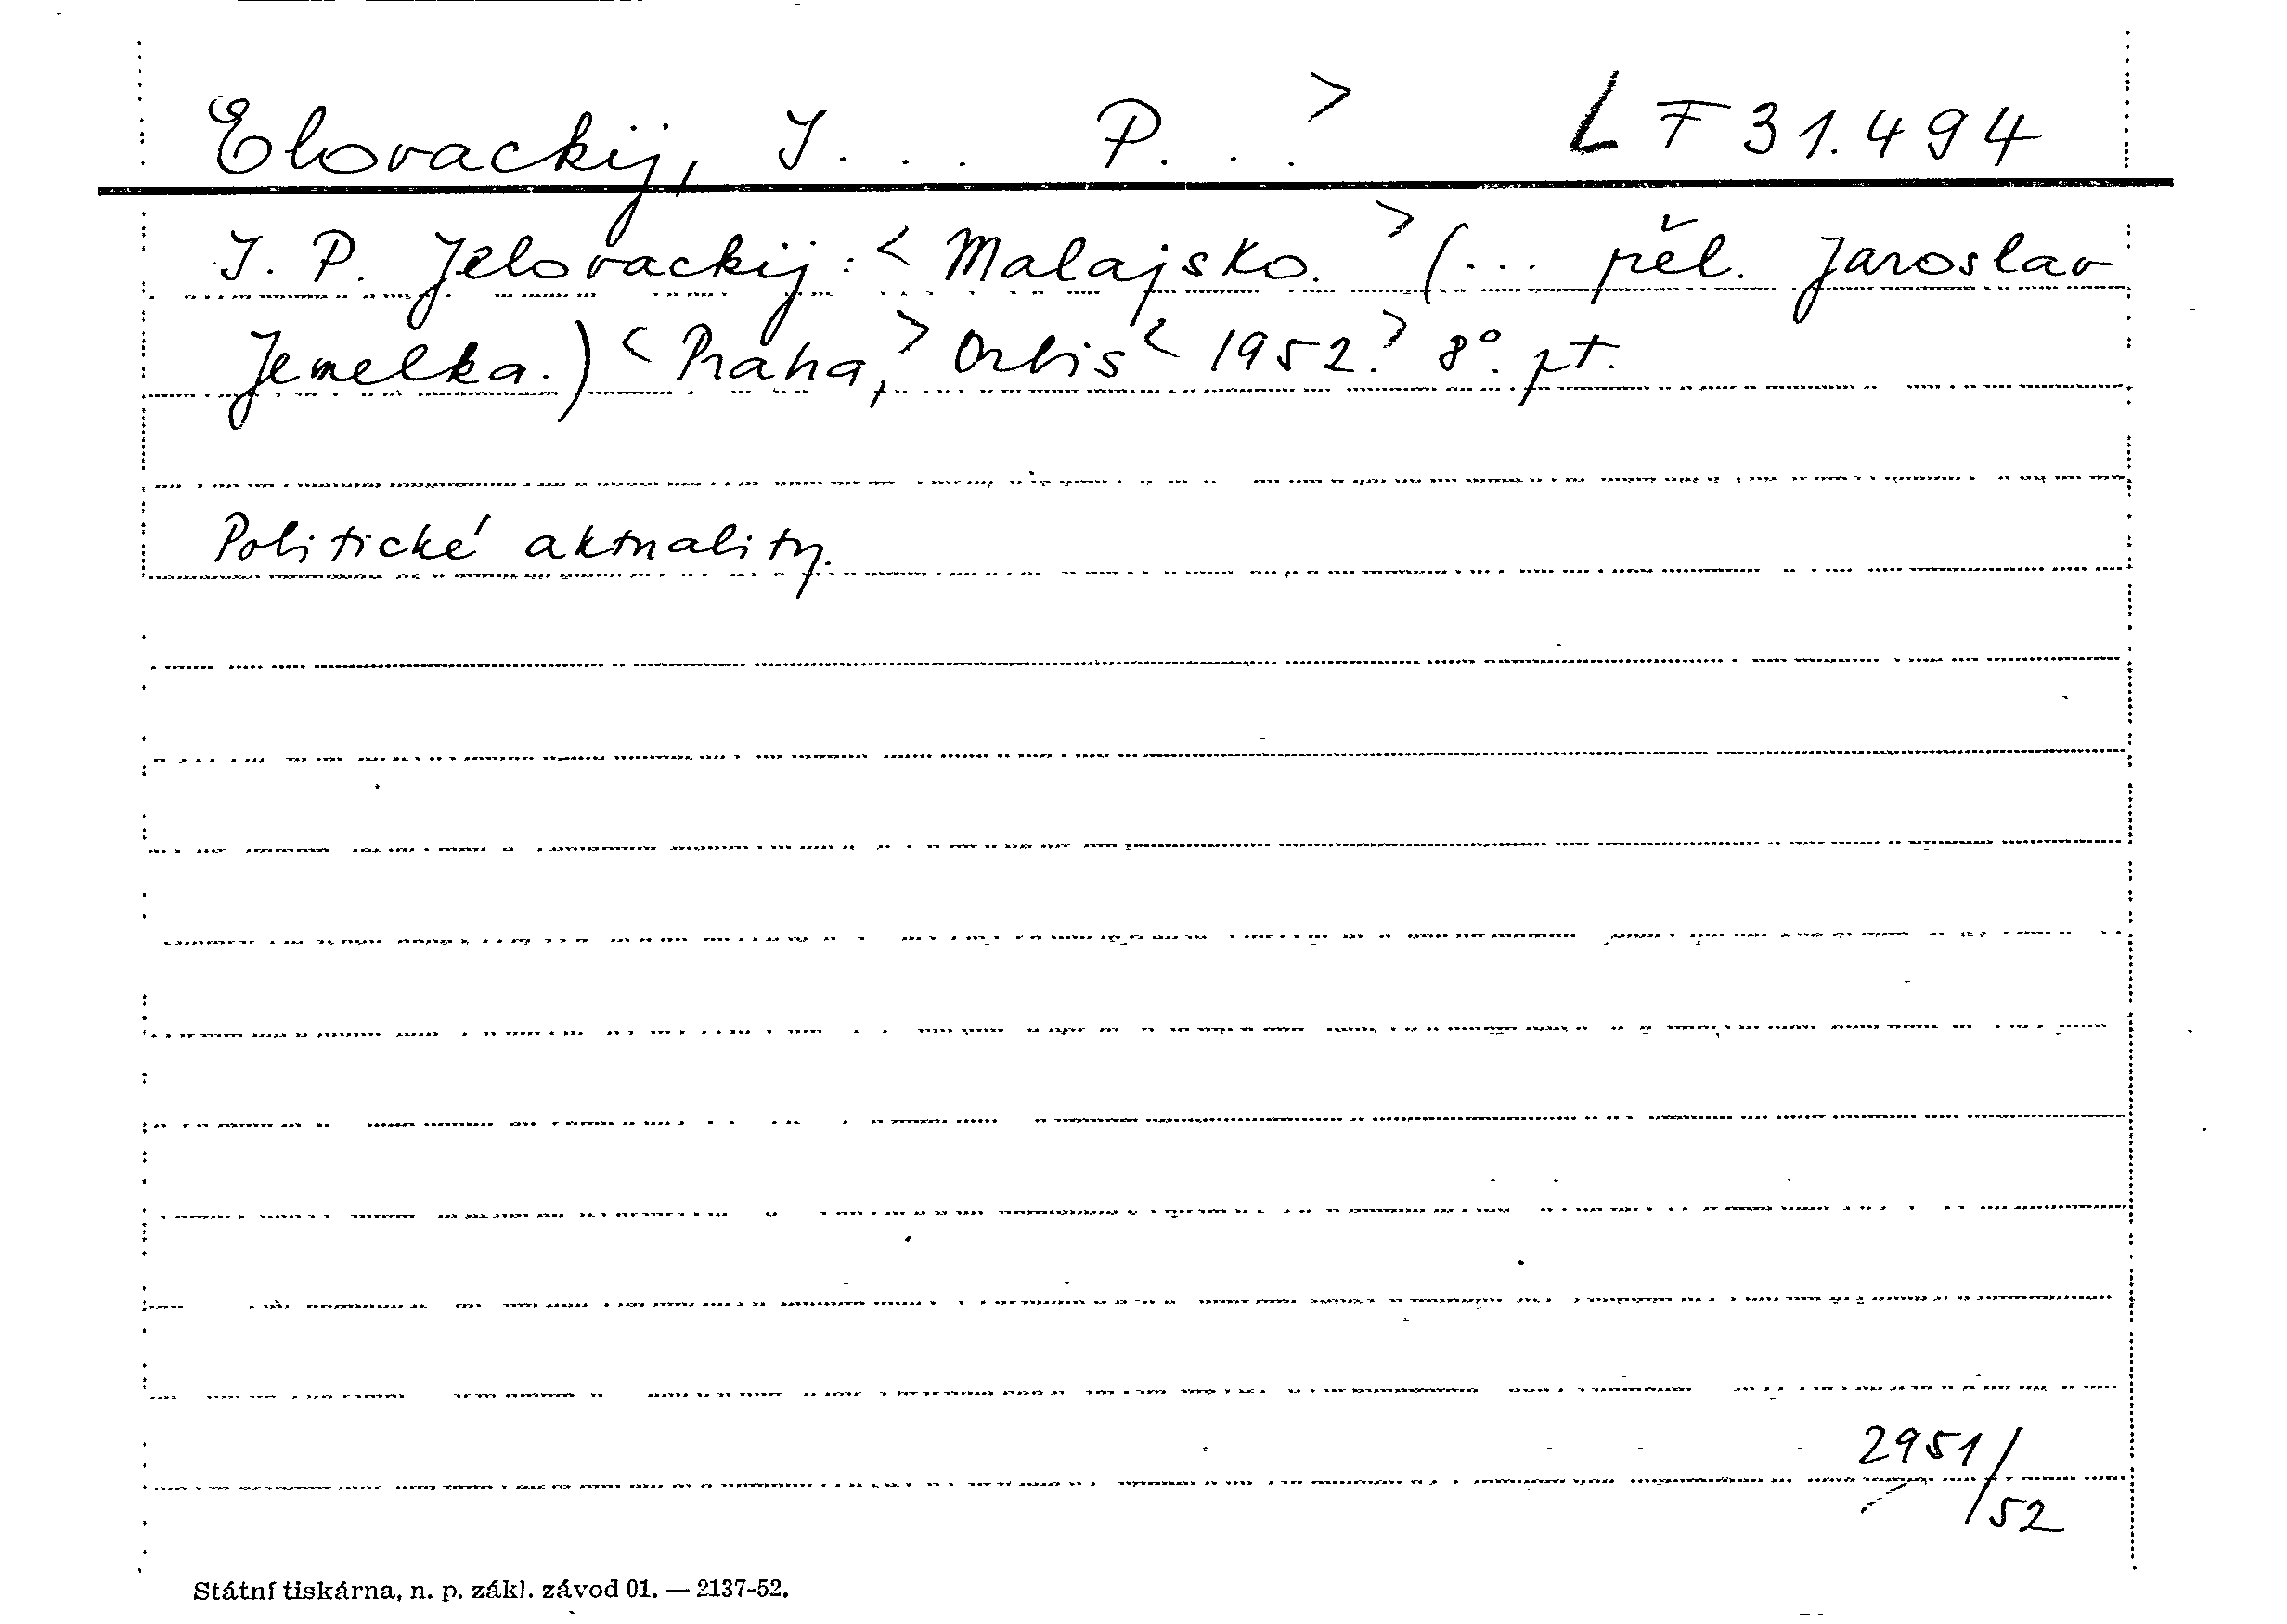 Elovackij, J... P...> L F 31.494
J. P. Jelovackij: <Malajsko.> (... přel. Jaroslav
Jemelka.) <Praha,> Orbis <1952.> 8°. pt.
Politické aktuality.
2951/
52
Státní tiskárna, n. p. zákl. závod 01. — 2137-52.